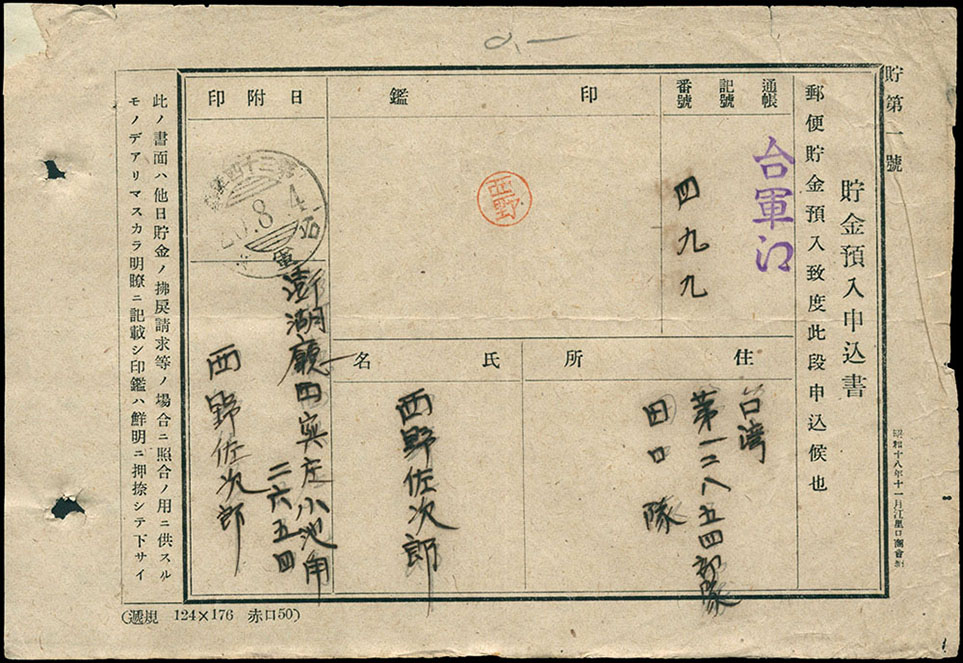 貯第一號
貯金預入申込書
昭和十八年十一月江里口商會納
郵便貯金預入致度此段申込候也
通帳
記號
番號
台軍
四九九
印鑑
西野
日附印
20.8.4
軍
住所
台湾
第一二八五四部隊
田口隊
氏名
西野佐次郎
澎湖廳西嶼庄小池角
二六五四
西野佐次郎
此ノ書面ハ他日貯金ノ拂戾請求等ノ場合ニ照合ノ用ニ供スル
モノデアリマスカラ明瞭ニ記載シ印鑑ハ鮮明ニ押捺シテ下サイ
(遞規 124×176 赤口50)